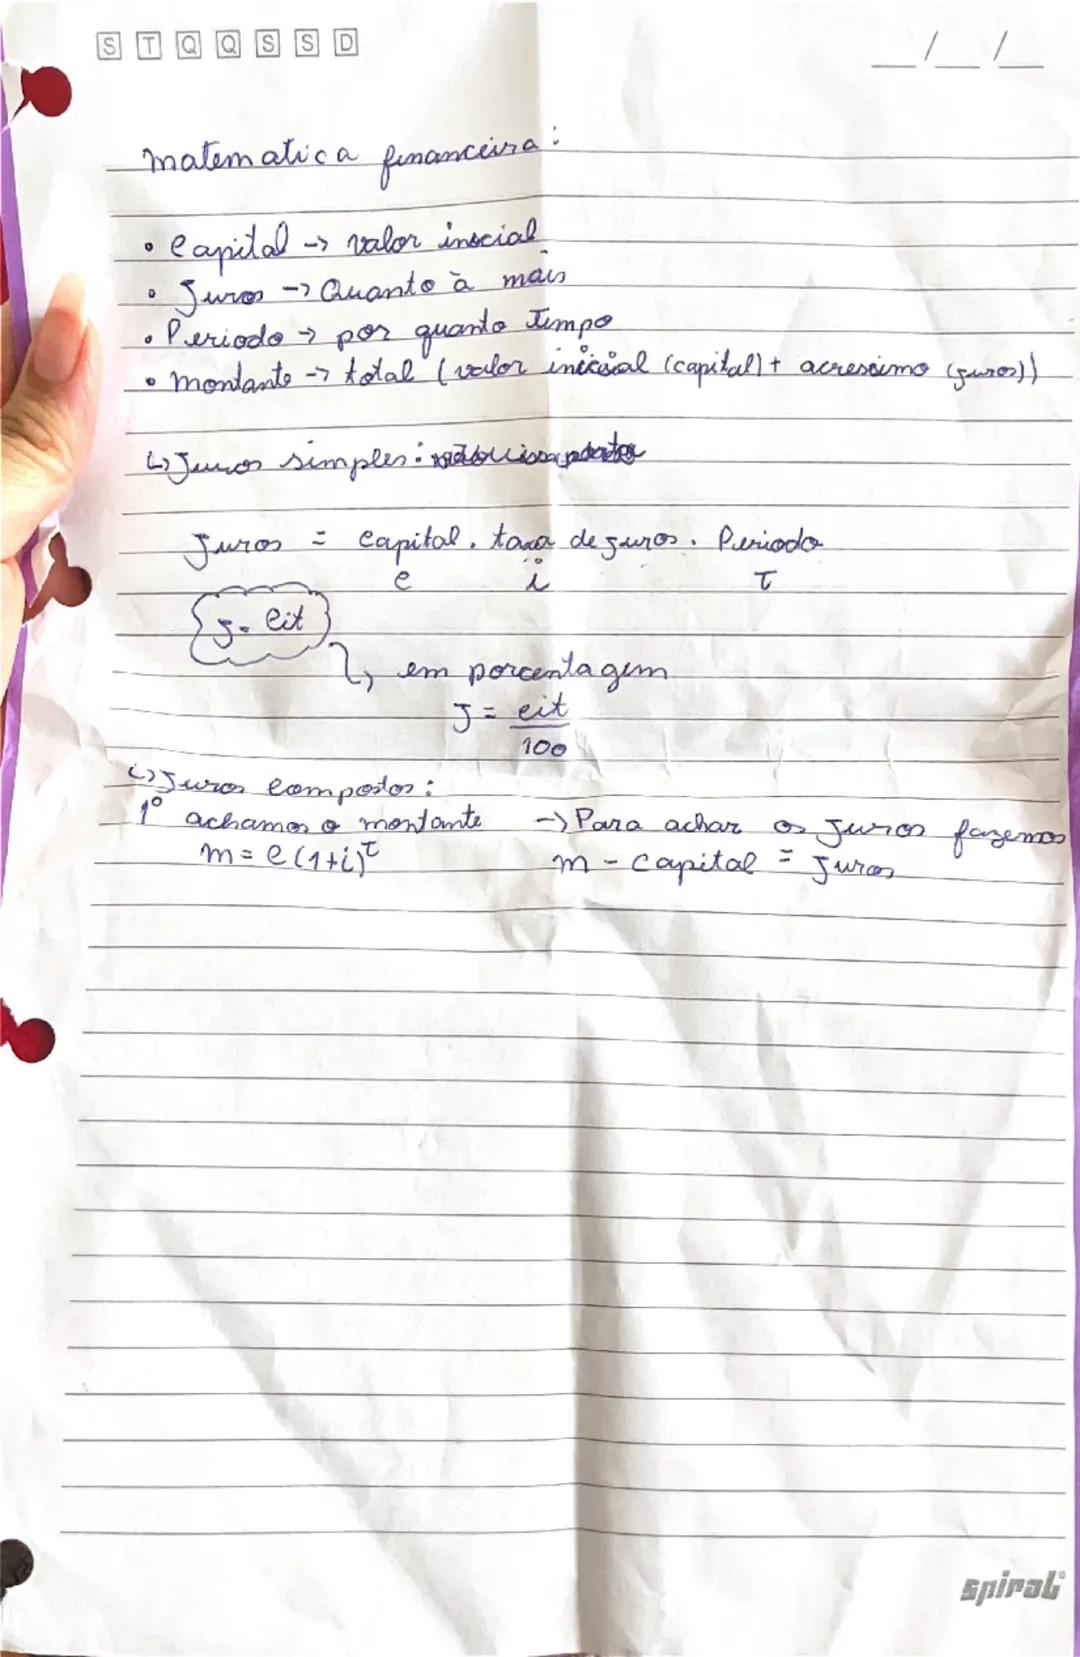 S T Q Q S S D
__/__/__
Matematica financeira:
• Capital -> valor inicial
• Juros -> Quanto à mais
• Periodo -> por quanto tempo
• Montante -> total (valor inicial (capital) + acrescimo (juros))
↳ Juros simples:
Juros = Capital . taxa de juros . Periodo
c i t
J = cit
↳ em porcentagem
J = cit
100
↳ Juros compostos:
1º achamos o montante -> Para achar os juros fazemos
m = c (1+i)^t m - capital = Juros
spiral